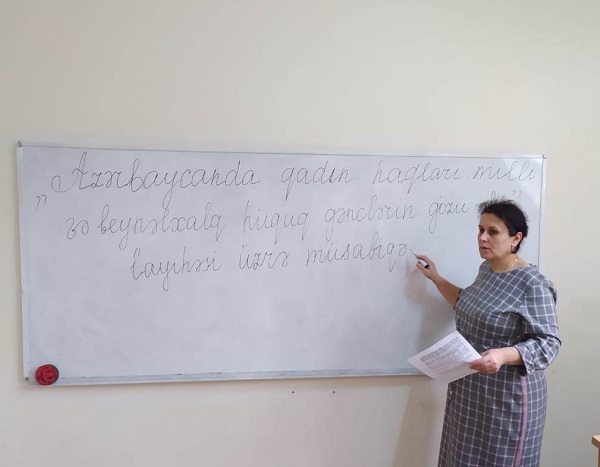 "Azərbaycanda qadın haqları. milli
və beynəlxalq hüquq gənclərin gözü ilə"
layihəsi üzrə müsabiqə